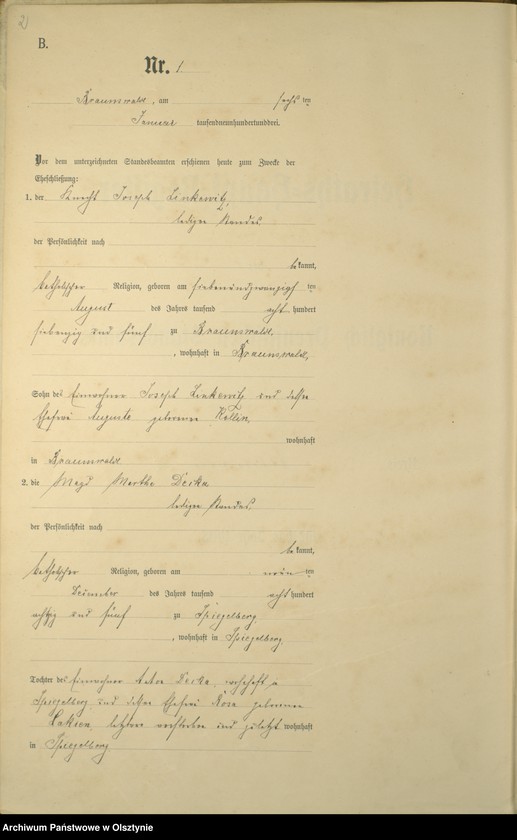 2
B.
Nr. 1
Braunswalde, am sechs ten
Januar tausendneunhundertunddrei.
Vor dem unterzeichneten Standesbeamten erschienen heute zum Zwecke der
Eheschließung:
1. der Knecht Joseph Linkewitz,
ledigen Standes
der Persönlichkeit nach
be kannt,
katholischer Religion, geboren am siebenundzwanzigs ten
August des Jahrs tausend acht hundert
siebenzig und fünf zu Braunswalde,
, wohnhaft in Braunswalde,
Sohn des Einwohner Joseph Linkewitz und dessen
Ehefrau Auguste geborenen
wohnhaft
in Braunswalde
2. die Magd Martha
ledigen Standes
der Persönlichkeit nach
be kannt,
katholischer Religion, geboren am neun ten
Dezember des Jahrs tausend acht hundert
achtzig und fünf zu Spiegelberg
, wohnhaft in Spiegelberg.
Tochter des Einwohner wohnhaft in
Spiegelberg und dessen Ehefrau Rosa geborenen
letztere verstorben und zuletzt wohnhaft
in Spiegelberg
Archiwum Państwowe w Olsztynie